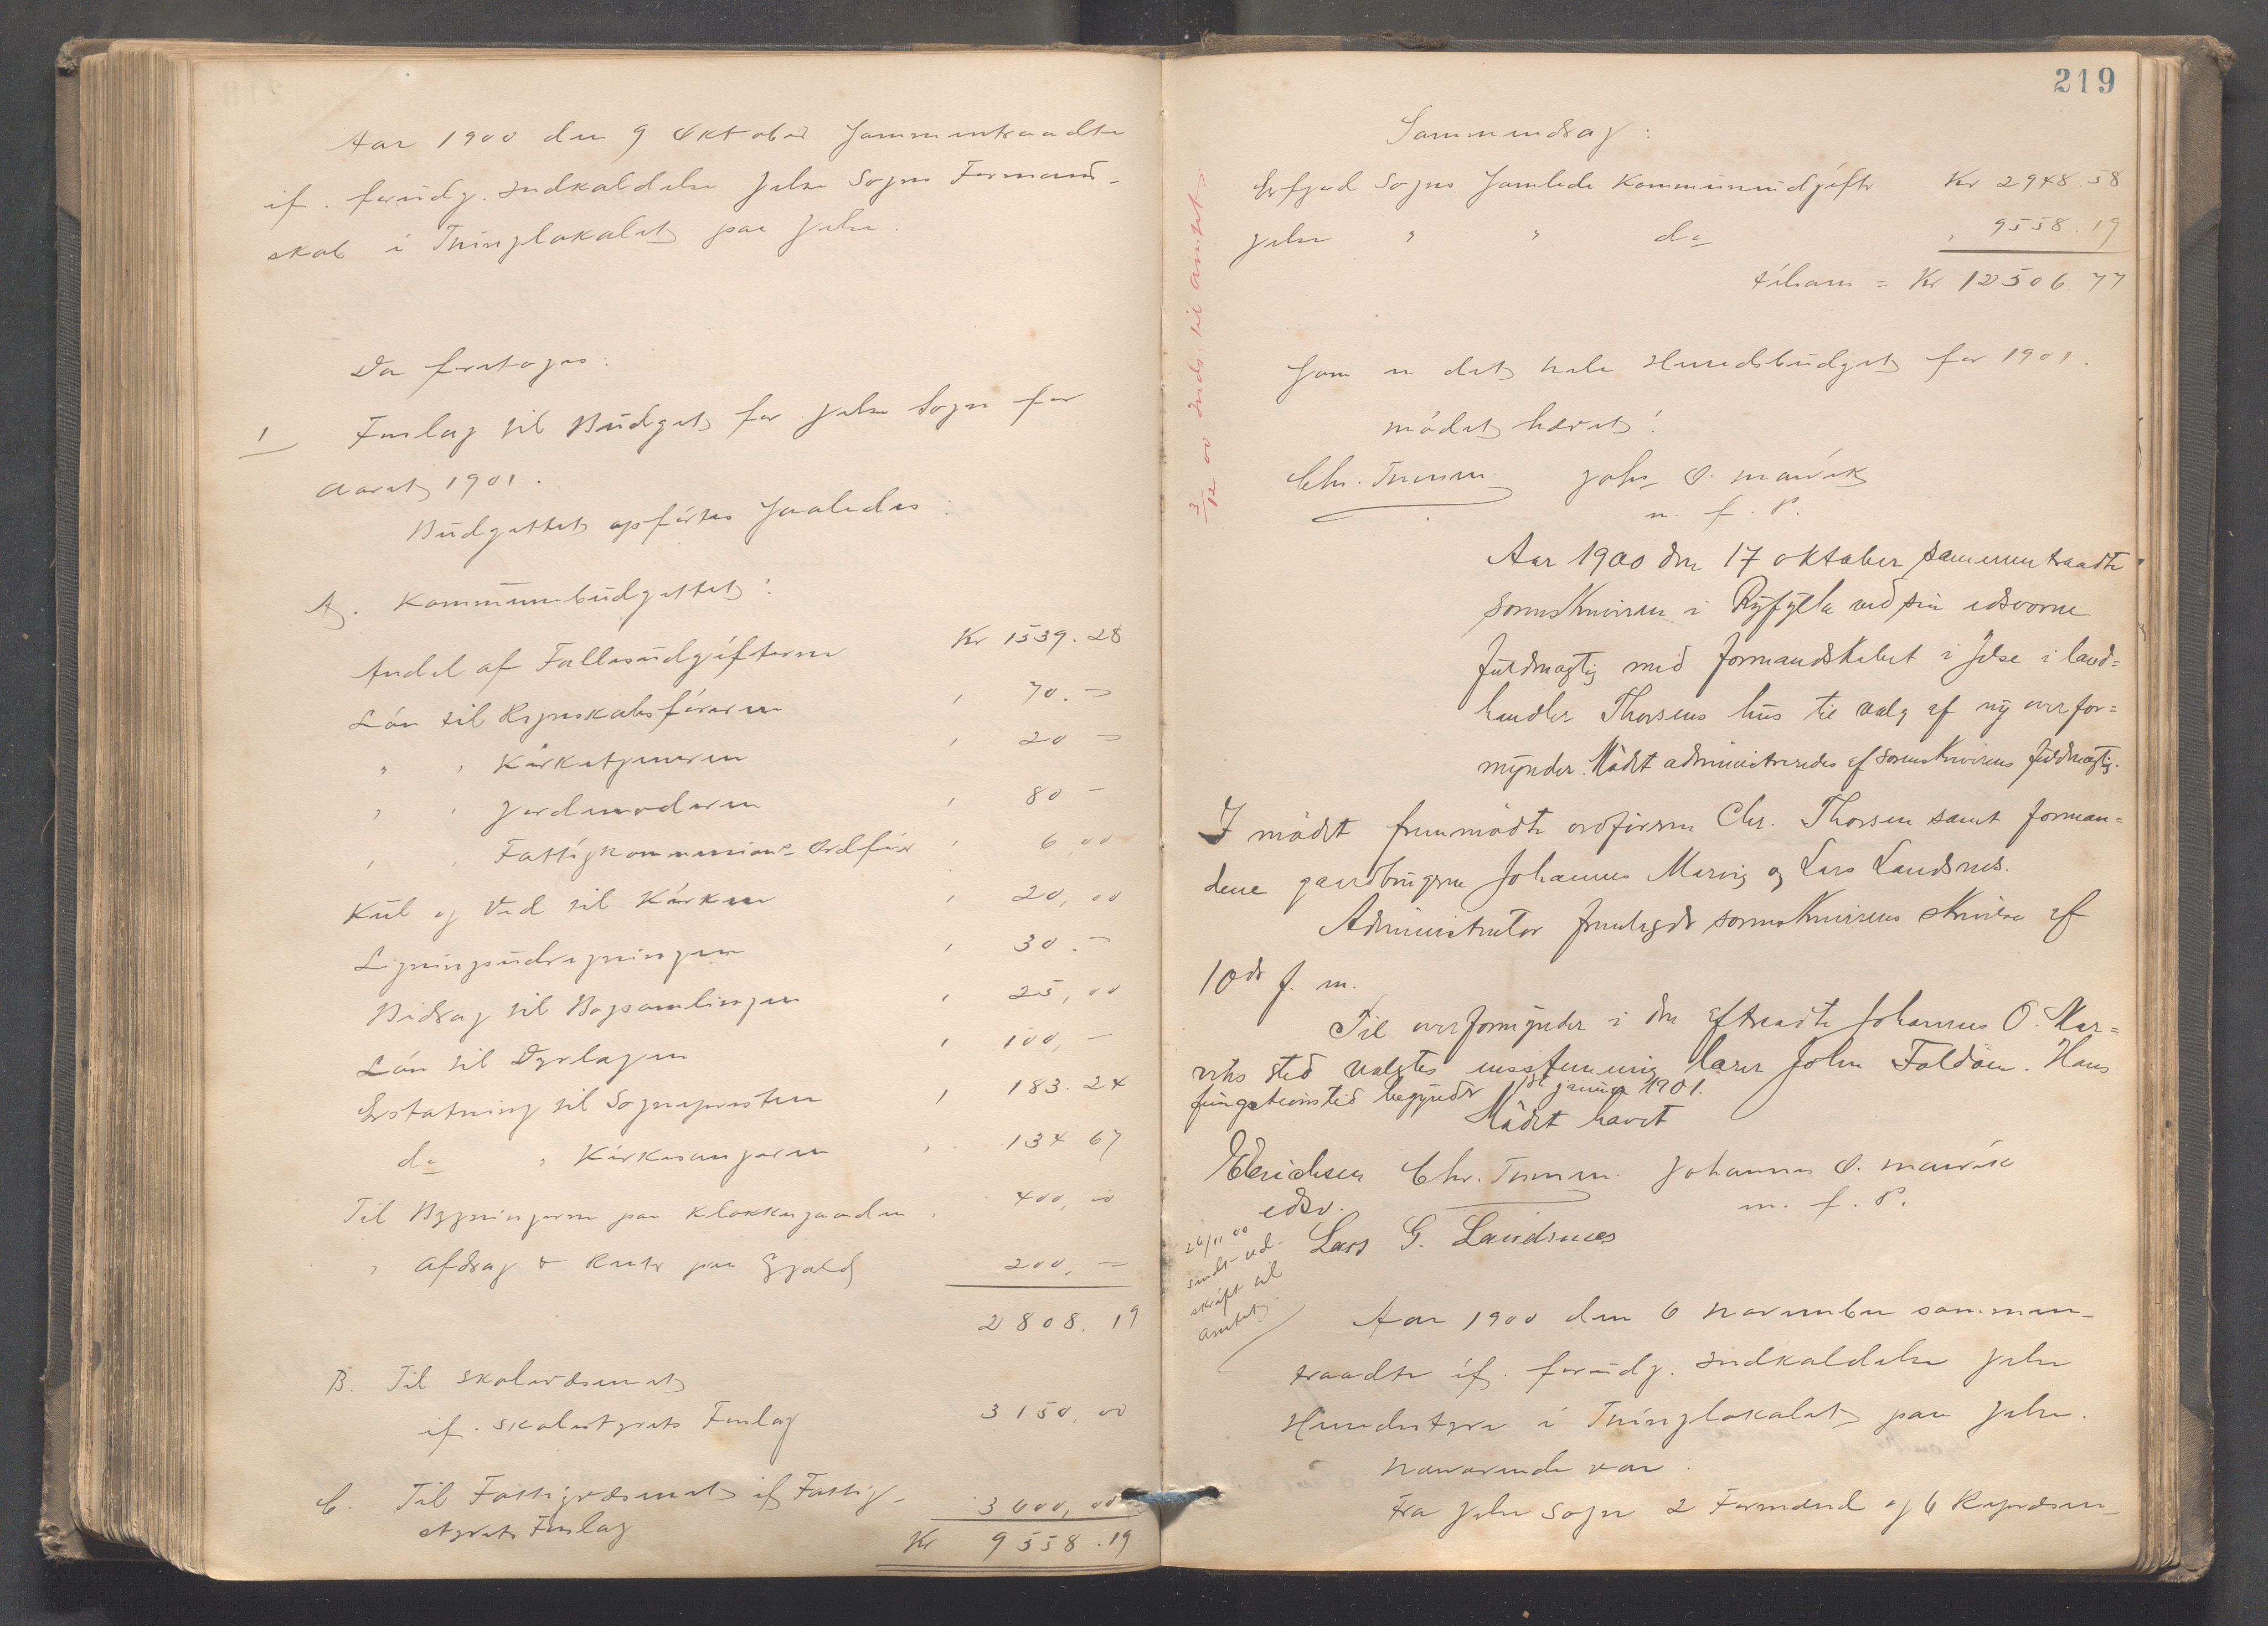 Aar 1900 den 9 Oktober sammentraadte
if. forudg. Indkaldelse Jelse Sogns Formand-
skab i Thinglokalet paa Jelse.
Da foretoges:
1 Forslag til Budget for Jelse Sogn for
Aaret 1901.
Budgettet opførtes saaledes:
A. Kommunebudgettet:
Andel af Fællesudgifterne Kr 1539.28
Løn til Regnskabsføreren " 70.-
" " Kirketjeneren " 20 -
" " Jordmoderen " 80 -
" " Fattigkommissions-Ordfør " 6,00
Kul og Ved til Kirken " 20,00
Ligningsudregningen " 30.-
Bidrag til Bogsamlingen " 25,00
Løn til Dyrlægen " 100,-
Erstatning til Sognepresten " 183.24
do " Kirkesangeren " 134 67
Til Bygningerne paa Klokkergaarden " 400,00
" Afdrag & Renter paa Gjæld 200,-
2808.19
B. Til Skolevæsenet
if. Skolestyrets Forslag 3150,00
C. Til Fattigvæsenet if Fattig-
styrets Forslag 3600,00
Kr 9558.19
219
Sammendrag:
Erfjord Sogns samlede Kommuneudgifter Kr 2948.58
Jelse " " do " 9558.19
tilsam = Kr 12506.77
3/12 00 Inds. til Amtet
som er det hele Herredsbudget for 1901.
Mødet hævet!
Chr. Thorsen Johs O. Marvik
m. f. P.
Aar 1900 den 17 oktober sammentraadte
sorenskriveren i Ryfylke ved sin edsvorne
fuldmægtig med formandskabet i Jelse i land=
handler Thorsens hus til valg af ny overfor=
mynder. Mødet administreredes af sorenskriverens fuldmægtig.
I mødet fremmødte ordføreren Chr. Thorsen samt forman=
dene gaardbrugerne Johannes Marvig og Lars Landsnes.
Administrator fremlagde sorenskriverens skrivelse af
10de f. m.
Til overformynder i den aftraadte Johannes O. Mar=
viks sted valgtes enstemmig lærer John Foldøen. Hans
fungtionstid begynder 1ste januar 1901.
Mødet hævet
Erichsen Chr. Thorsen. Johannes O. Marvik
edsv. m. f. P.
Lars G. Landsnes
26/11 00
sendt ud-
skrift til
Amtet
Aar 1900 den 6 November sammen-
traadte if. forudg. Indkaldelse Jelse
Herredsstyre i Thinglokalet paa Jelse.
Nærværende var:
Fra Jelse Sogn 2 Formænd og 6 Repræsen-